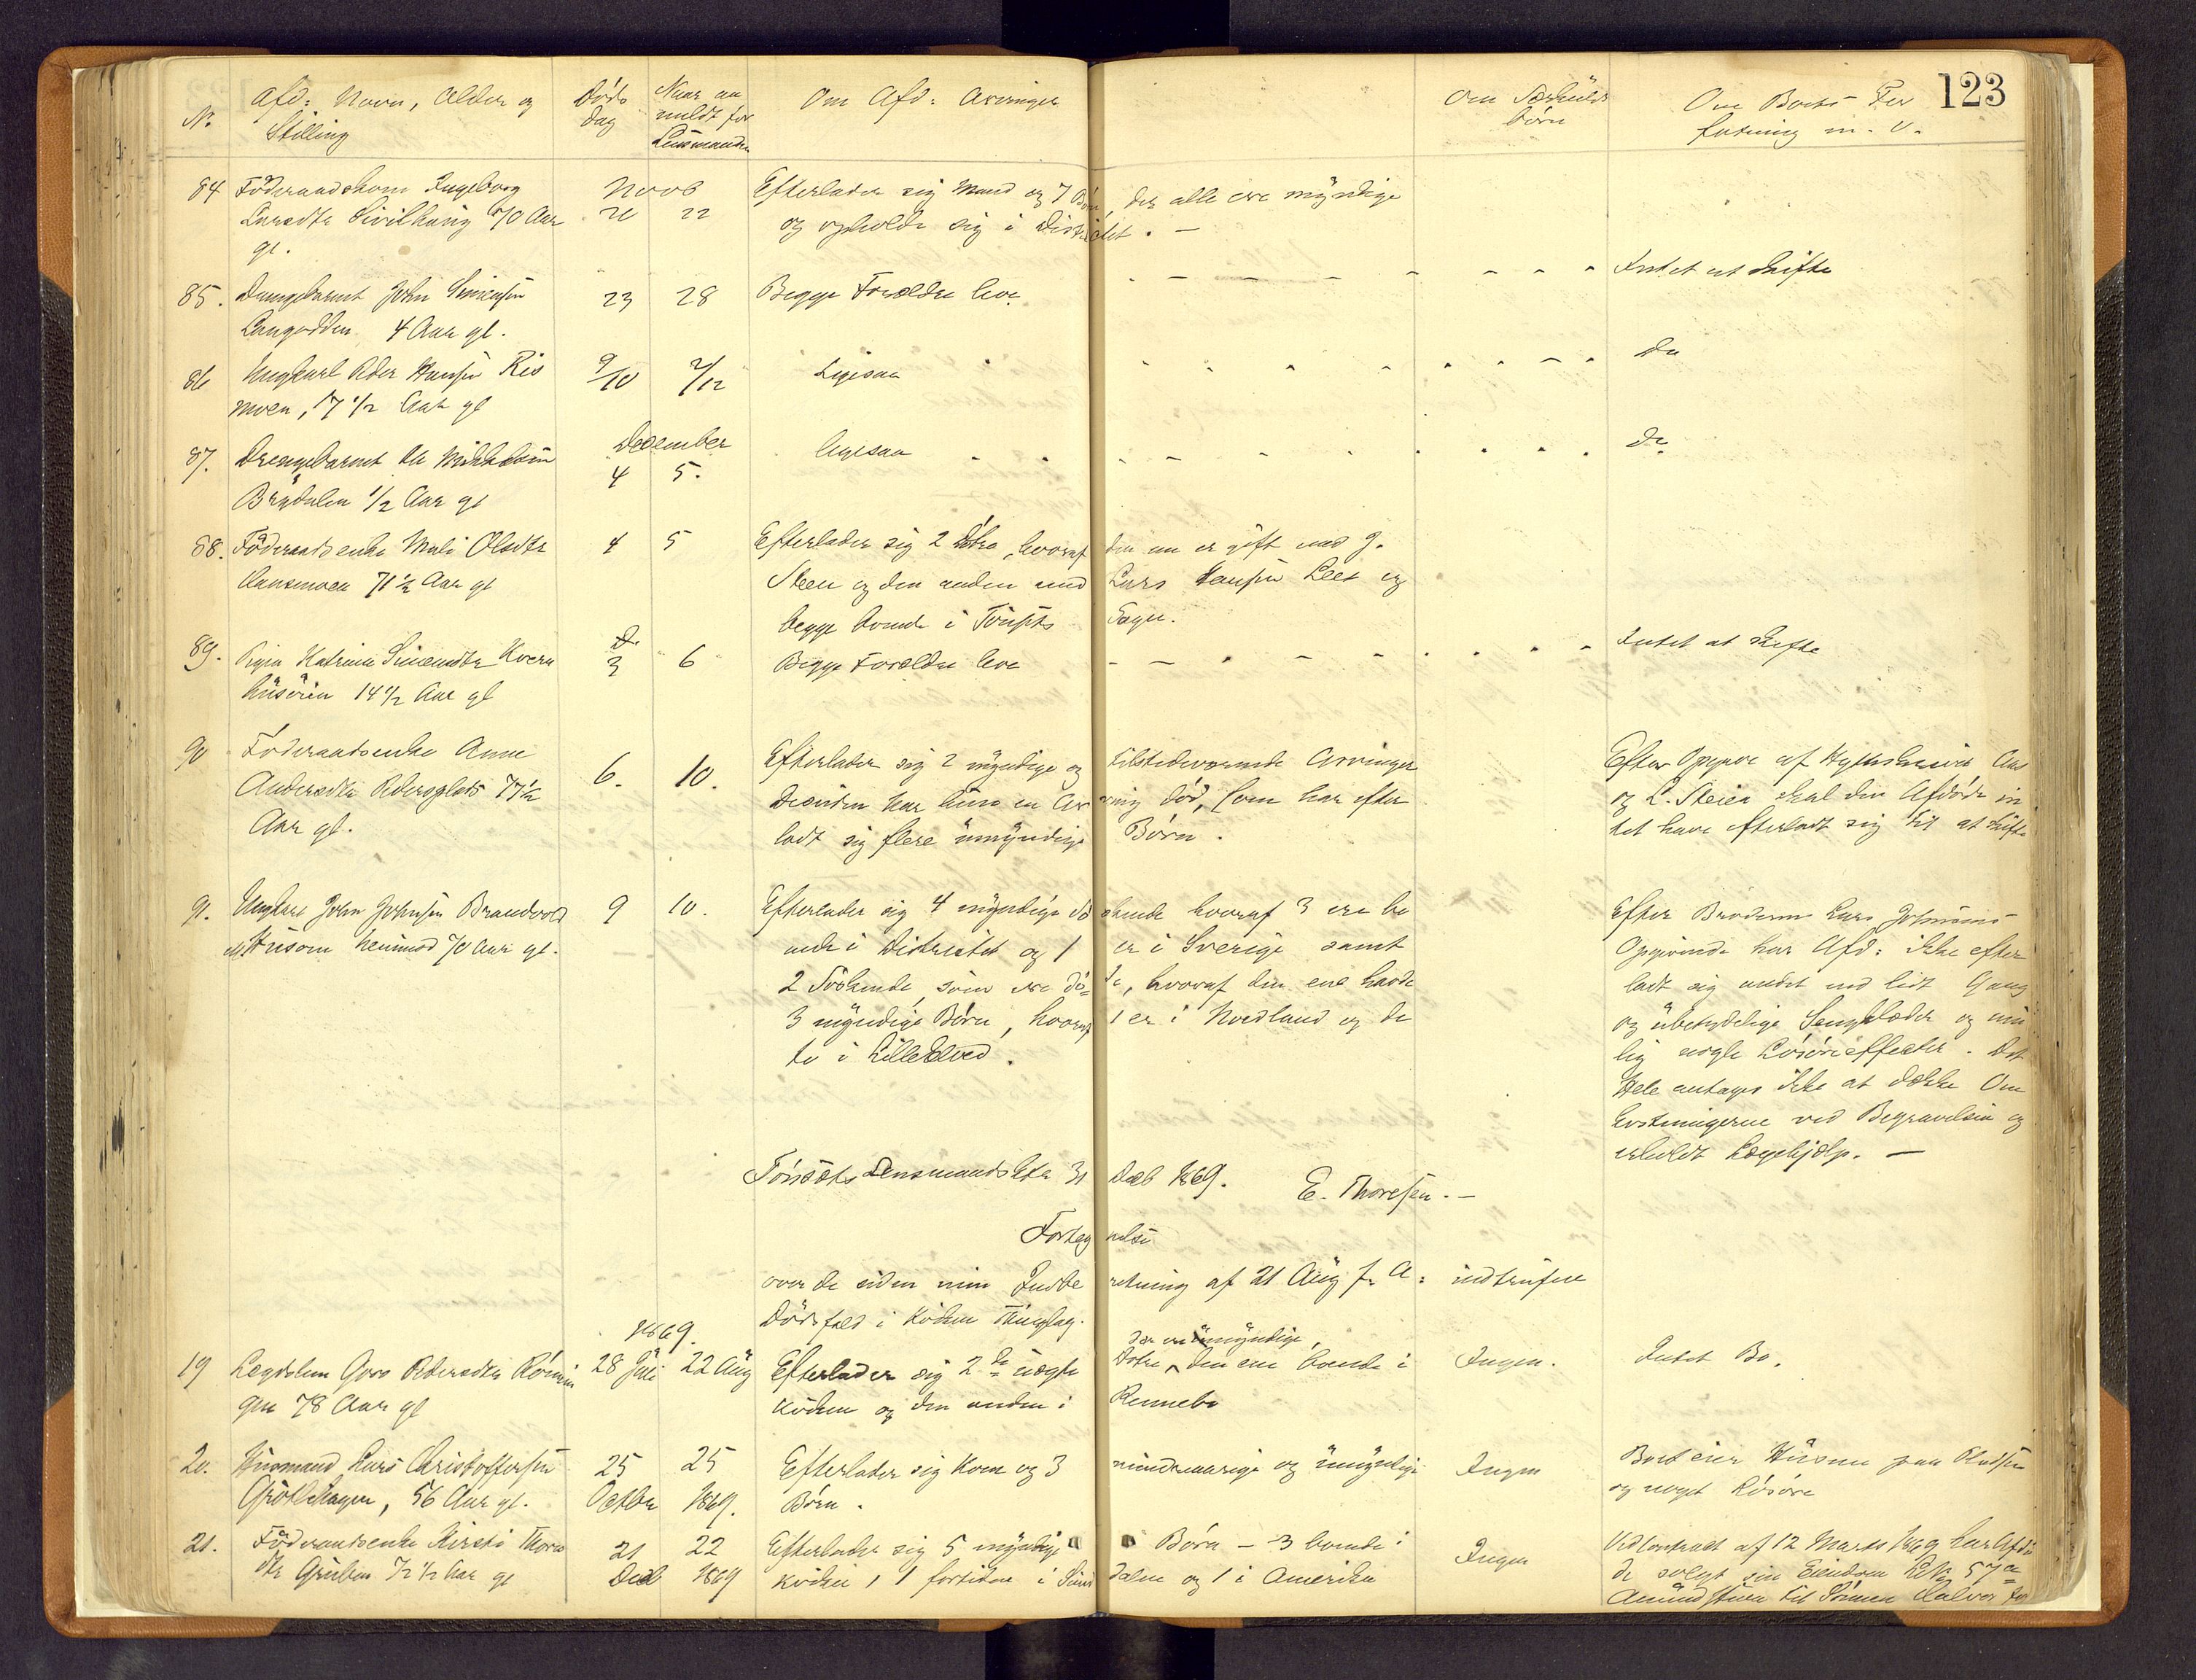 123
No. Afd: Navn, Alder og Stilling
Døds Dag
Naar anmeldt for Lensmanden
Om Afd: Arvinger
Om Særkulds børn
Om Boets Forfatning m. v.
84 Föderaadskone Ingeborg
Larsdtr Sivilhaug 70 Aar
gl.
Novb
20 22
Efterlader sig Mand og 7 Børn, der alle ere myndige
og opholde sig i Districtet. —
85. Drengebarnet John Simensen
Langodden 4 Aar gl.
23 28
Begge Forældre leve
Intet at skifte
86 Ungkarl Peder Hansen Ris
moen, 17 1/2 Aar gl
9/10 2/12
Ligesaa
Do
87. Drengebarnet Ole Mikkelsen
Brydalen 1/2 Aar gl
December
4 5.
ligesaa
Do
88. Föderaadsenke Mali Olsdtr
Aansmoen 71 1/2 Aar gl
4 5
Efterlader sig 2 Døtre, hvoraf den en er gift med J.
Steen og den anden med Lars Hansen Leet og
begge boende i Tönsets Sogn.
89. Pigen Katrina Simensdtr Kvern
husöien 14 1/2 Aar gl
D.
3 6
Begge Forældre leve
Intet at skifte
90 Föderaadsenke Anne
Andersdtr Pedersplads 77 1/2
Aar gl.
6. 10.
Efterlader sig 2 myndige og tilstedeværende Arvinger
Desuden har hun en Arving død, som har efter
ladt sig flere umyndige Børn.
Efter Opgave af
og L. Steien skal den Afdøde in
tet have efterladt sig til at skifte
91. Ungkarl John Johnsen Brandvold
Husom henimod 70 Aar gl.
9 10.
Efterlader sig 4 myndige Sö skende hvoraf 3 ere bo
ende i Districtet og 1 er i Sverige samt
2 Söskende, som ere dö= de, hvoraf den ene havde
3 myndige Børn, hvoraf 1 er i Nordland og de
to i LilleElved.
Efter Broderen Lars Johnsens
Opgivende har Afd: ikke efter
ladt sig andet end lidt Gang
og ubetydelige Sengklæder og en
lig nogle Løsøreeffecter. Det
Hele antages ikke at dække Om
kostningerne ved Begravelsen og
erholdt Lægehjelp. —
Tönsets Lensmandsktr 31 Decb 1869. E. Thoresen. —
Forteg nelse
over de siden min Indbe retning af 21 Aug f. A: indtrufne
Dödsfald i Kvikne Thinglag.
1869.
19 Lægdslem Goro Pedersdtr
gen 78 Aar gl
28 Juli 22 Aug
Efterlader sig 2de uægte Døtre der ere umyndige, den ene boende i
Kvikne og den anden i Rennebo
Ingen.
Intet Bo.
20. Husmand Lars Christoffersen
Grötlihagen, 56 Aar gl.
25 25
Octbr 1869.
Efterlader sig Kone og 3 mindreaarige og umyndige
Børn.
Ingen
Boet eier Husene paa Pladsen
og noget Løsøre
21. Föderaadsenke Kirsti Thors
dtr Gruben 72 1/2 Aar gl
21 22
Decb 1869
Efterlader sig 5 myndige Børn – 3 boende i
Kvikne, 1 fortiden i Sund dalen og 1 i Amerika
Ingen
Ved Contract af 12 Marts 1869 har Afdö
de solgt sin Eiendom
til Sönnen Halvor